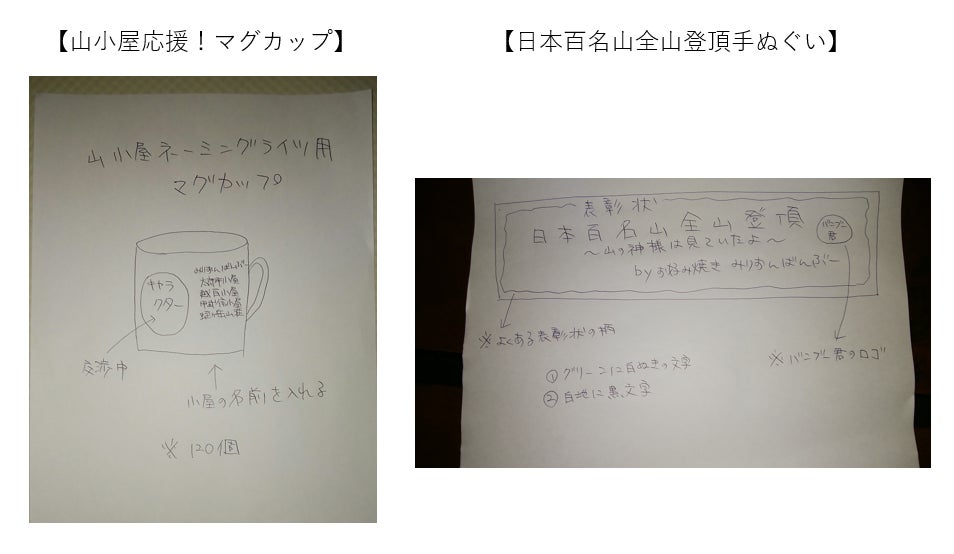 【山小屋応援！マグカップ】
山小屋ネーミングライツ用
マグカップ
キャラ
クター
みりおんばんぶー
交渉中
小屋の名前を入れる
※120個
【日本百名山全山登頂手ぬぐい】
表彰状
日本百名山全山登頂
～山の神様は見ていたよ～
byお好み焼き みりおんばんぶー
バンブー
君
※よくある表彰状の柄
※バンブー君のロゴ
①グリーンに白ぬきの文字
②白地に黒文字